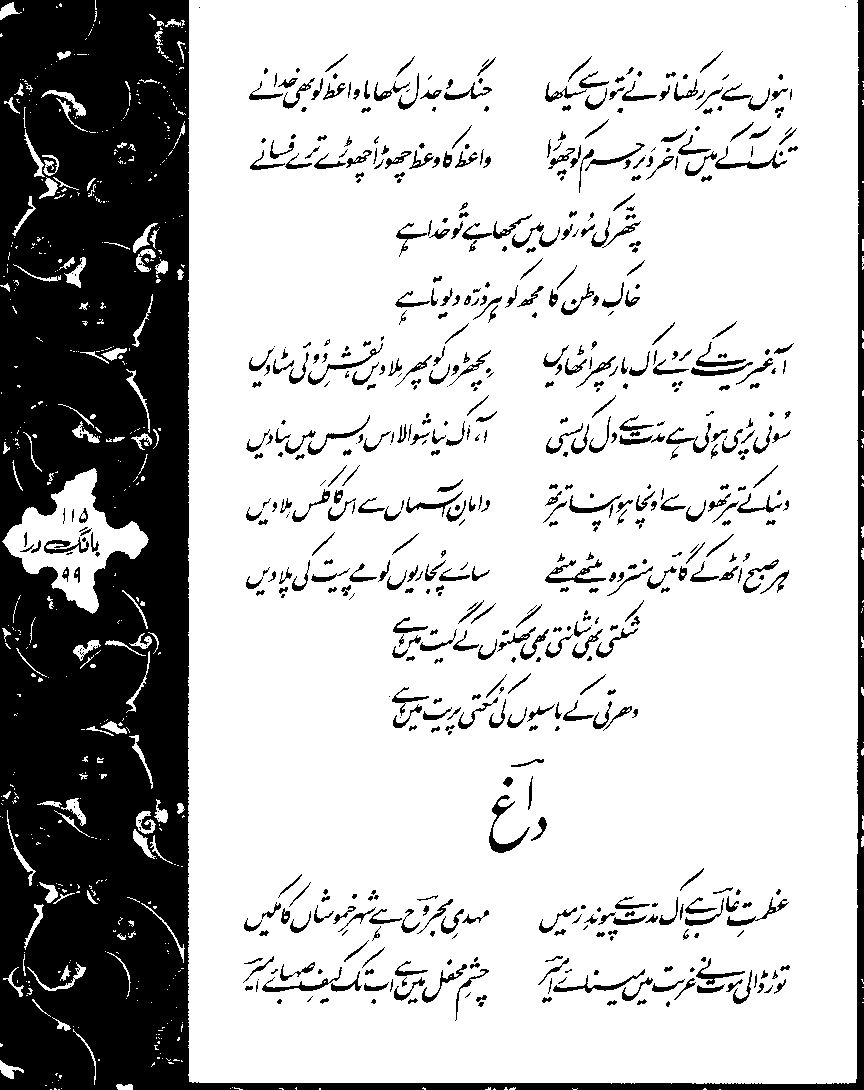 اپنوں سے بَیر رکھنا تو نے بُتوں سے سیکھا جنگ و جدَل سِکھایا واعظ کو بھی خدا نے
تنگ آ کے میں نے آخر دَیر و حرم کو چھوڑا واعظ کا وعظ چھوڑا، چھوڑے ترے فسانے
پتھّر کی مُورتوں میں سمجھا ہے تُو خدا ہے
خاکِ وطن کا مجھ کو ہر ذرّہ دیوتا ہے
آ، غیریت کے پردے اک بار پھر اُٹھا دیں بِچھڑوں کو پھر مِلا دیں نقشِ دُوئی مٹا دیں
سُونی پڑی ہوئی ہے مدّت سے دل کی بستی آ، اک نیا شِوالا اس دیس میں بنا دیں
دنیا کے تیرتھوں سے اونچا ہو اپنا تیرتھ دامانِ آسماں سے اس کا کَلَس مِلا دیں
ہر صبح اُٹھ کے گائیں منتر وہ میٹھے میٹھے سارے پُجاریوں کو مے پِیت کی پلا دیں
شکتی بھی، شانتی بھی بھگتوں کے گیت میں ہے
دھرتی کے باسیوں کی مُکتی پریت میں ہے
داغ
عظمتِ غالبؔ ہے اک مدّت سے پیوندِ زمیں مہدیِ مجروحؔ ہے شہرِ خموشاں کا مکیں
توڑ ڈالی موت نے غربت میں مِینائے امیرؔ چشمِ محفل میں ہے اب تک کیفِ صہبائے امیرؔ
۱۱۵
بانگِ درا
۹۹